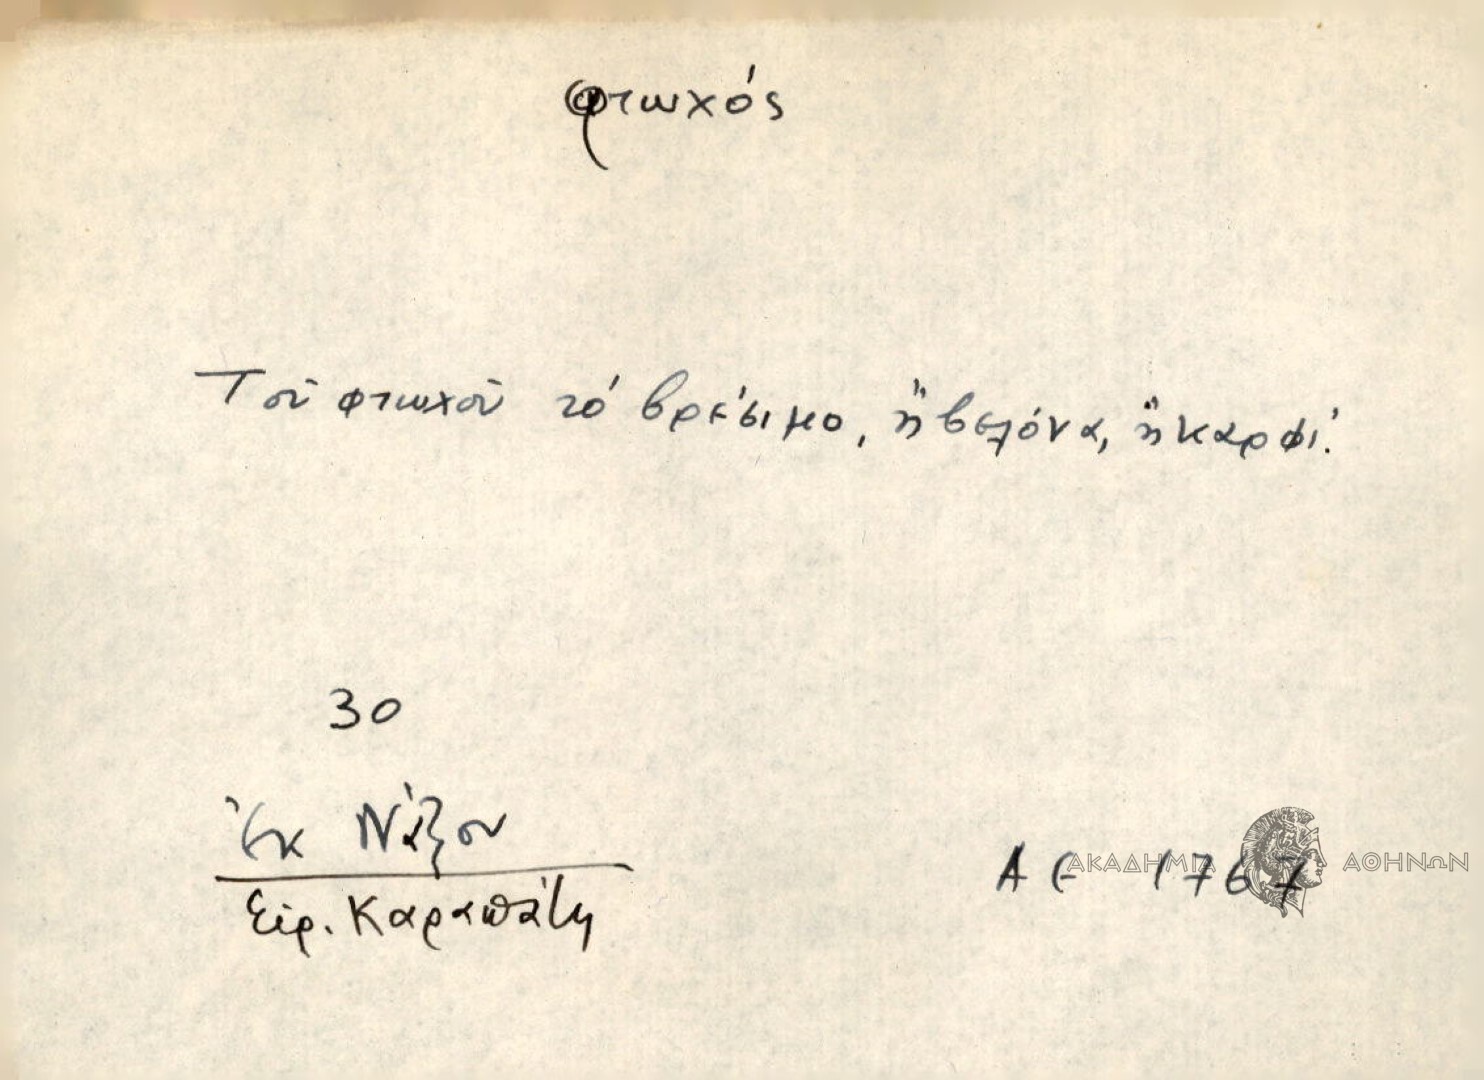 φτωχός
Τοῦ φτωχοῦ τό βρέσιμο, ἤ βελόνα, ἤ καρφί.
30
Ἐκ Νάξου
Εἰρ. Καραπάτη
ΑΕ 1767
ΑΚΑΔΗΜΙΑ ΑΘΗΝΩΝ